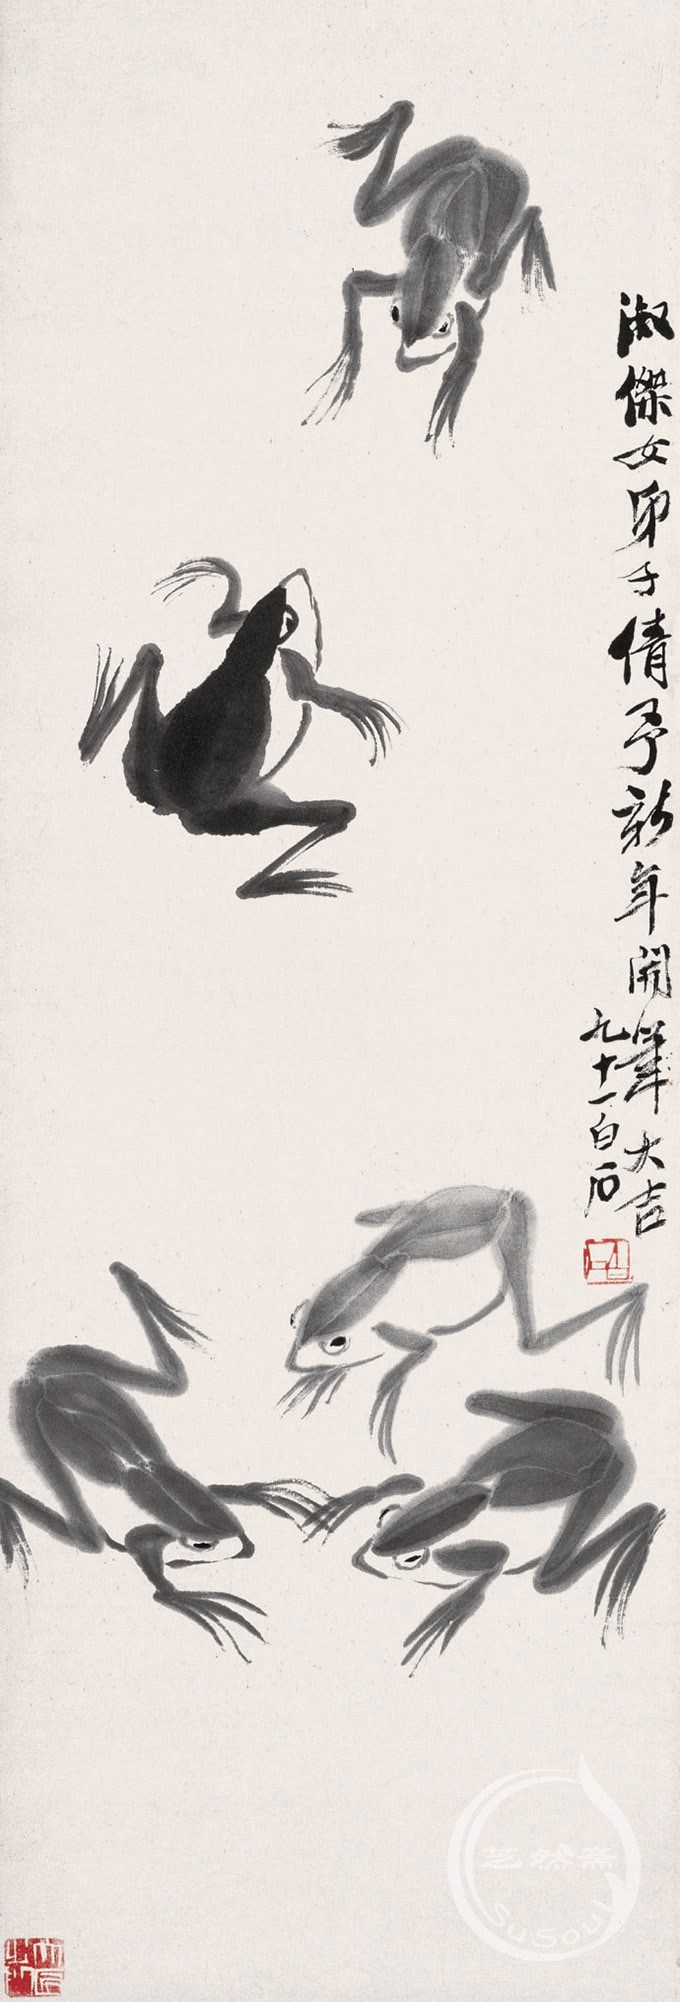 淑傑女弟子倩予新年開筆大吉
九十一白石
白石
芝然斋
SuSoul